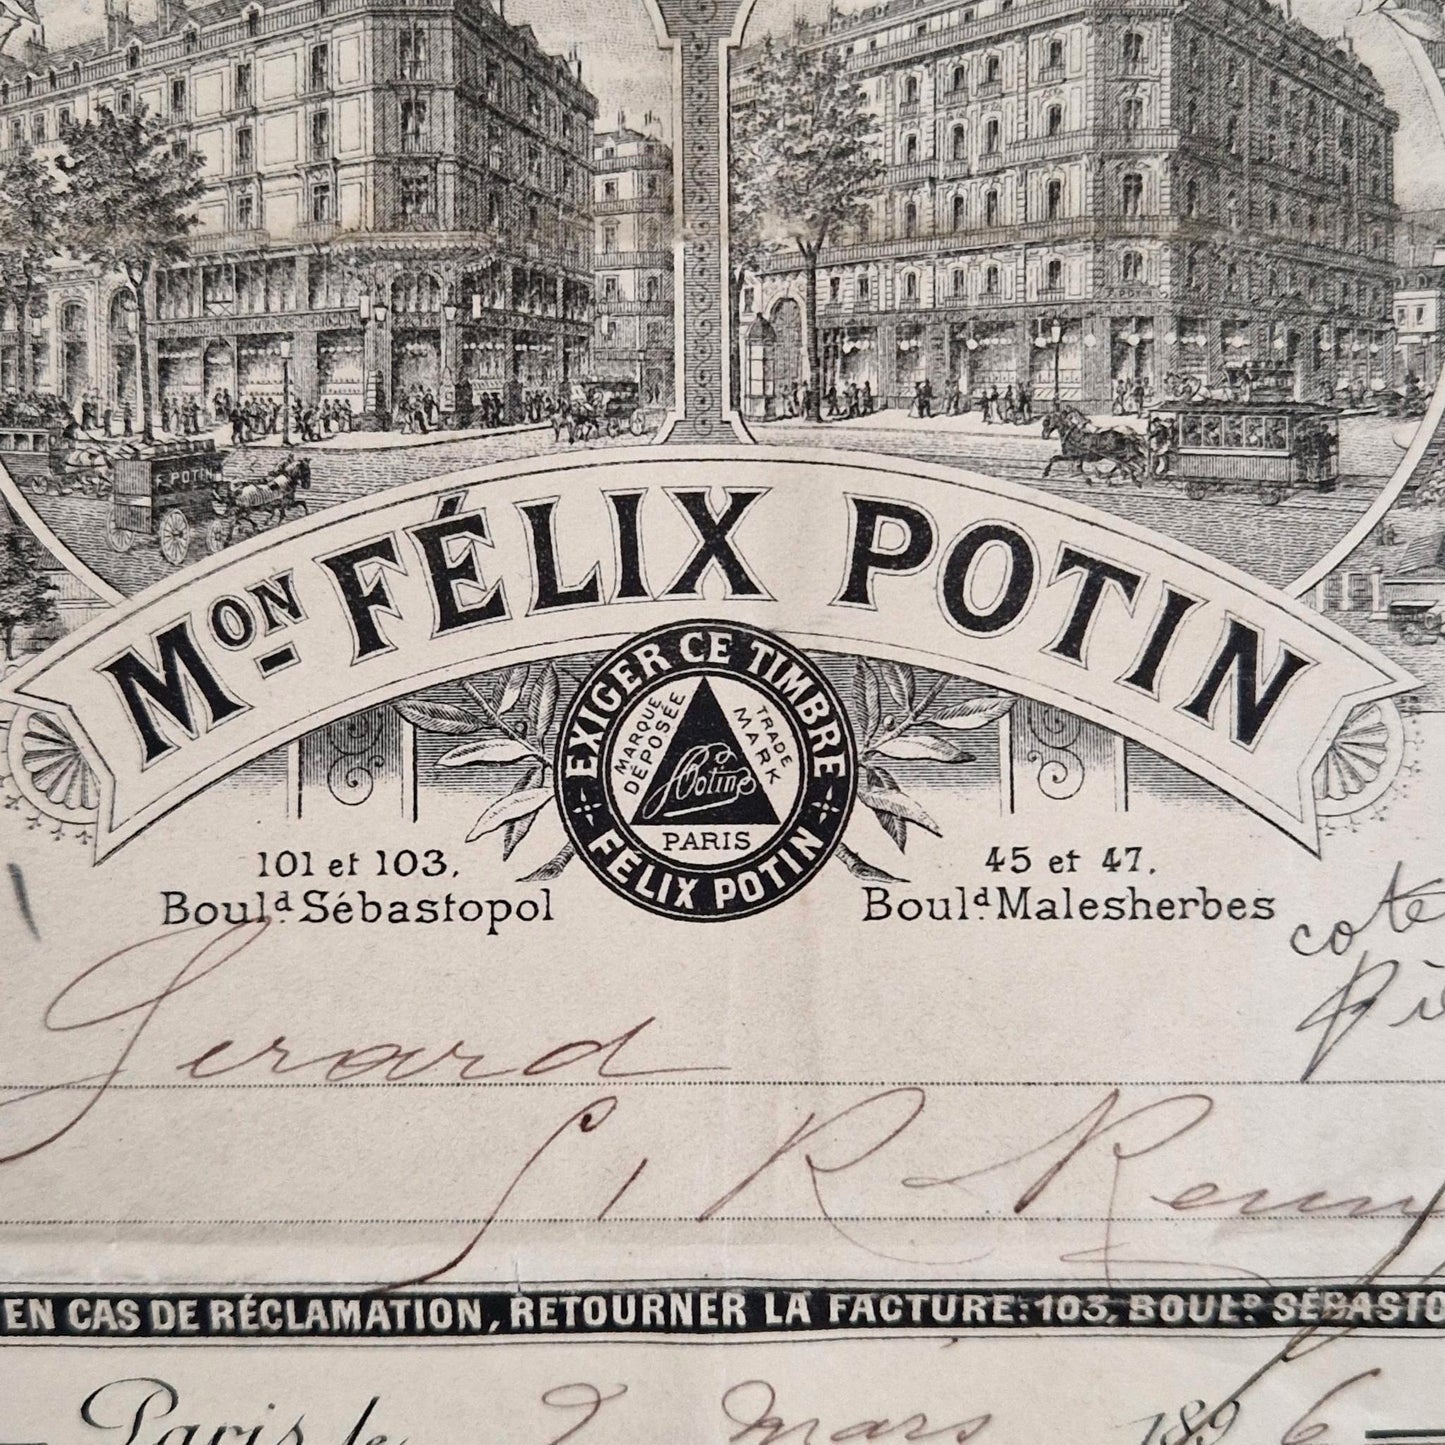 F. POTIN
Mᴼᴺ FÉLIX POTIN
EXIGER CE TIMBRE
MARQUE DÉPOSÉE
TRADE MARK
Potin
PARIS
FÉLIX POTIN
101 et 103.
Boulᵈ Sébastopol
45 et 47.
Boulᵈ. Malesherbes
cote
Piè
Gerard
R
EN CAS DE RÉCLAMATION, RETOURNER LA FACTURE: 103, BOULᴰ. SÉBASTO
Paris le mars 1896